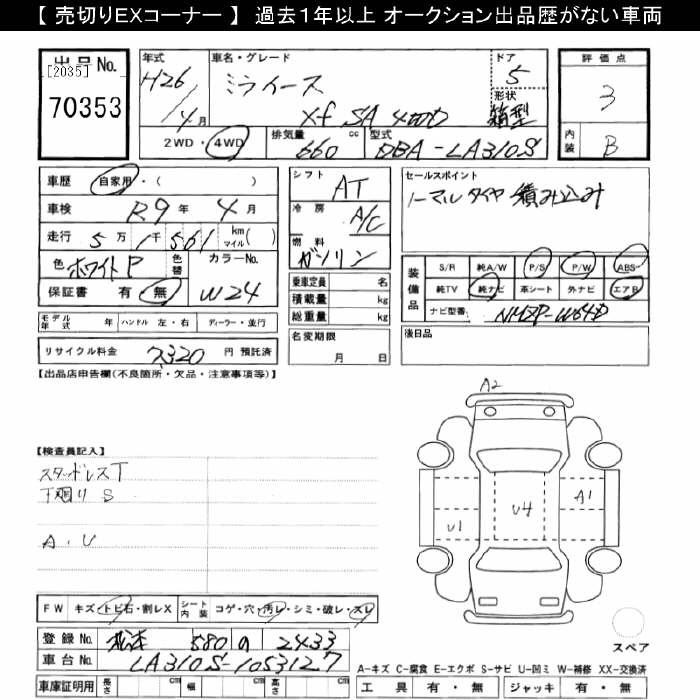 【 売切りEXコーナー 】 過去１年以上 オークション出品歴がない車両
出品No. [2035] 70353
年式 H26/4月
車名・グレード ミライース Xf SA 4WD
ドア 5
形状 箱型
評価点 3
内装 B
2WD・4WD
排気量 660 cc
型式 DBA-LA310S
車歴 自家用・( )
車検 R9年 4月
走行 5万 1千 561 km マイル( )
色 ホワイトP 色替 カラーNo. W24
保証書 有 無
モデル年式 年 ハンドル 左・右 ディーラー・並行
リサイクル料金 7320 円 預託済
シフト AT
冷房 A/C
燃料 ガソリン
乗車定員 名
積載量 kg
総重量 kg
名変期限 月 日
セールスポイント
ノーマルタイヤ積み込み
装備品 S/R 純A/W P/S P/W ABS
純TV 純ナビ 革シート 外ナビ エアB
ナビ型番 NHZP-W64D
後日品
【出品店申告欄(不良箇所・欠品・注意事項等)】
【検査員記入】
スタッドレスT
下廻り S
A・U
A2
U1
U4
A1
スペア
FW キズ・トビ石・割レX シート内装 コゲ・穴・汚レ・シミ・破レ・スレ
登録No. 松本 580 の 2433
車台No. LA310S-1053127
車庫証明用 長さ cm 幅 cm 高さ cm
A-キズ C-腐食 E-エクボ S-サビ U-凹ミ W-補修 XX-交換済
工具 有・無 ジャッキ 有・無